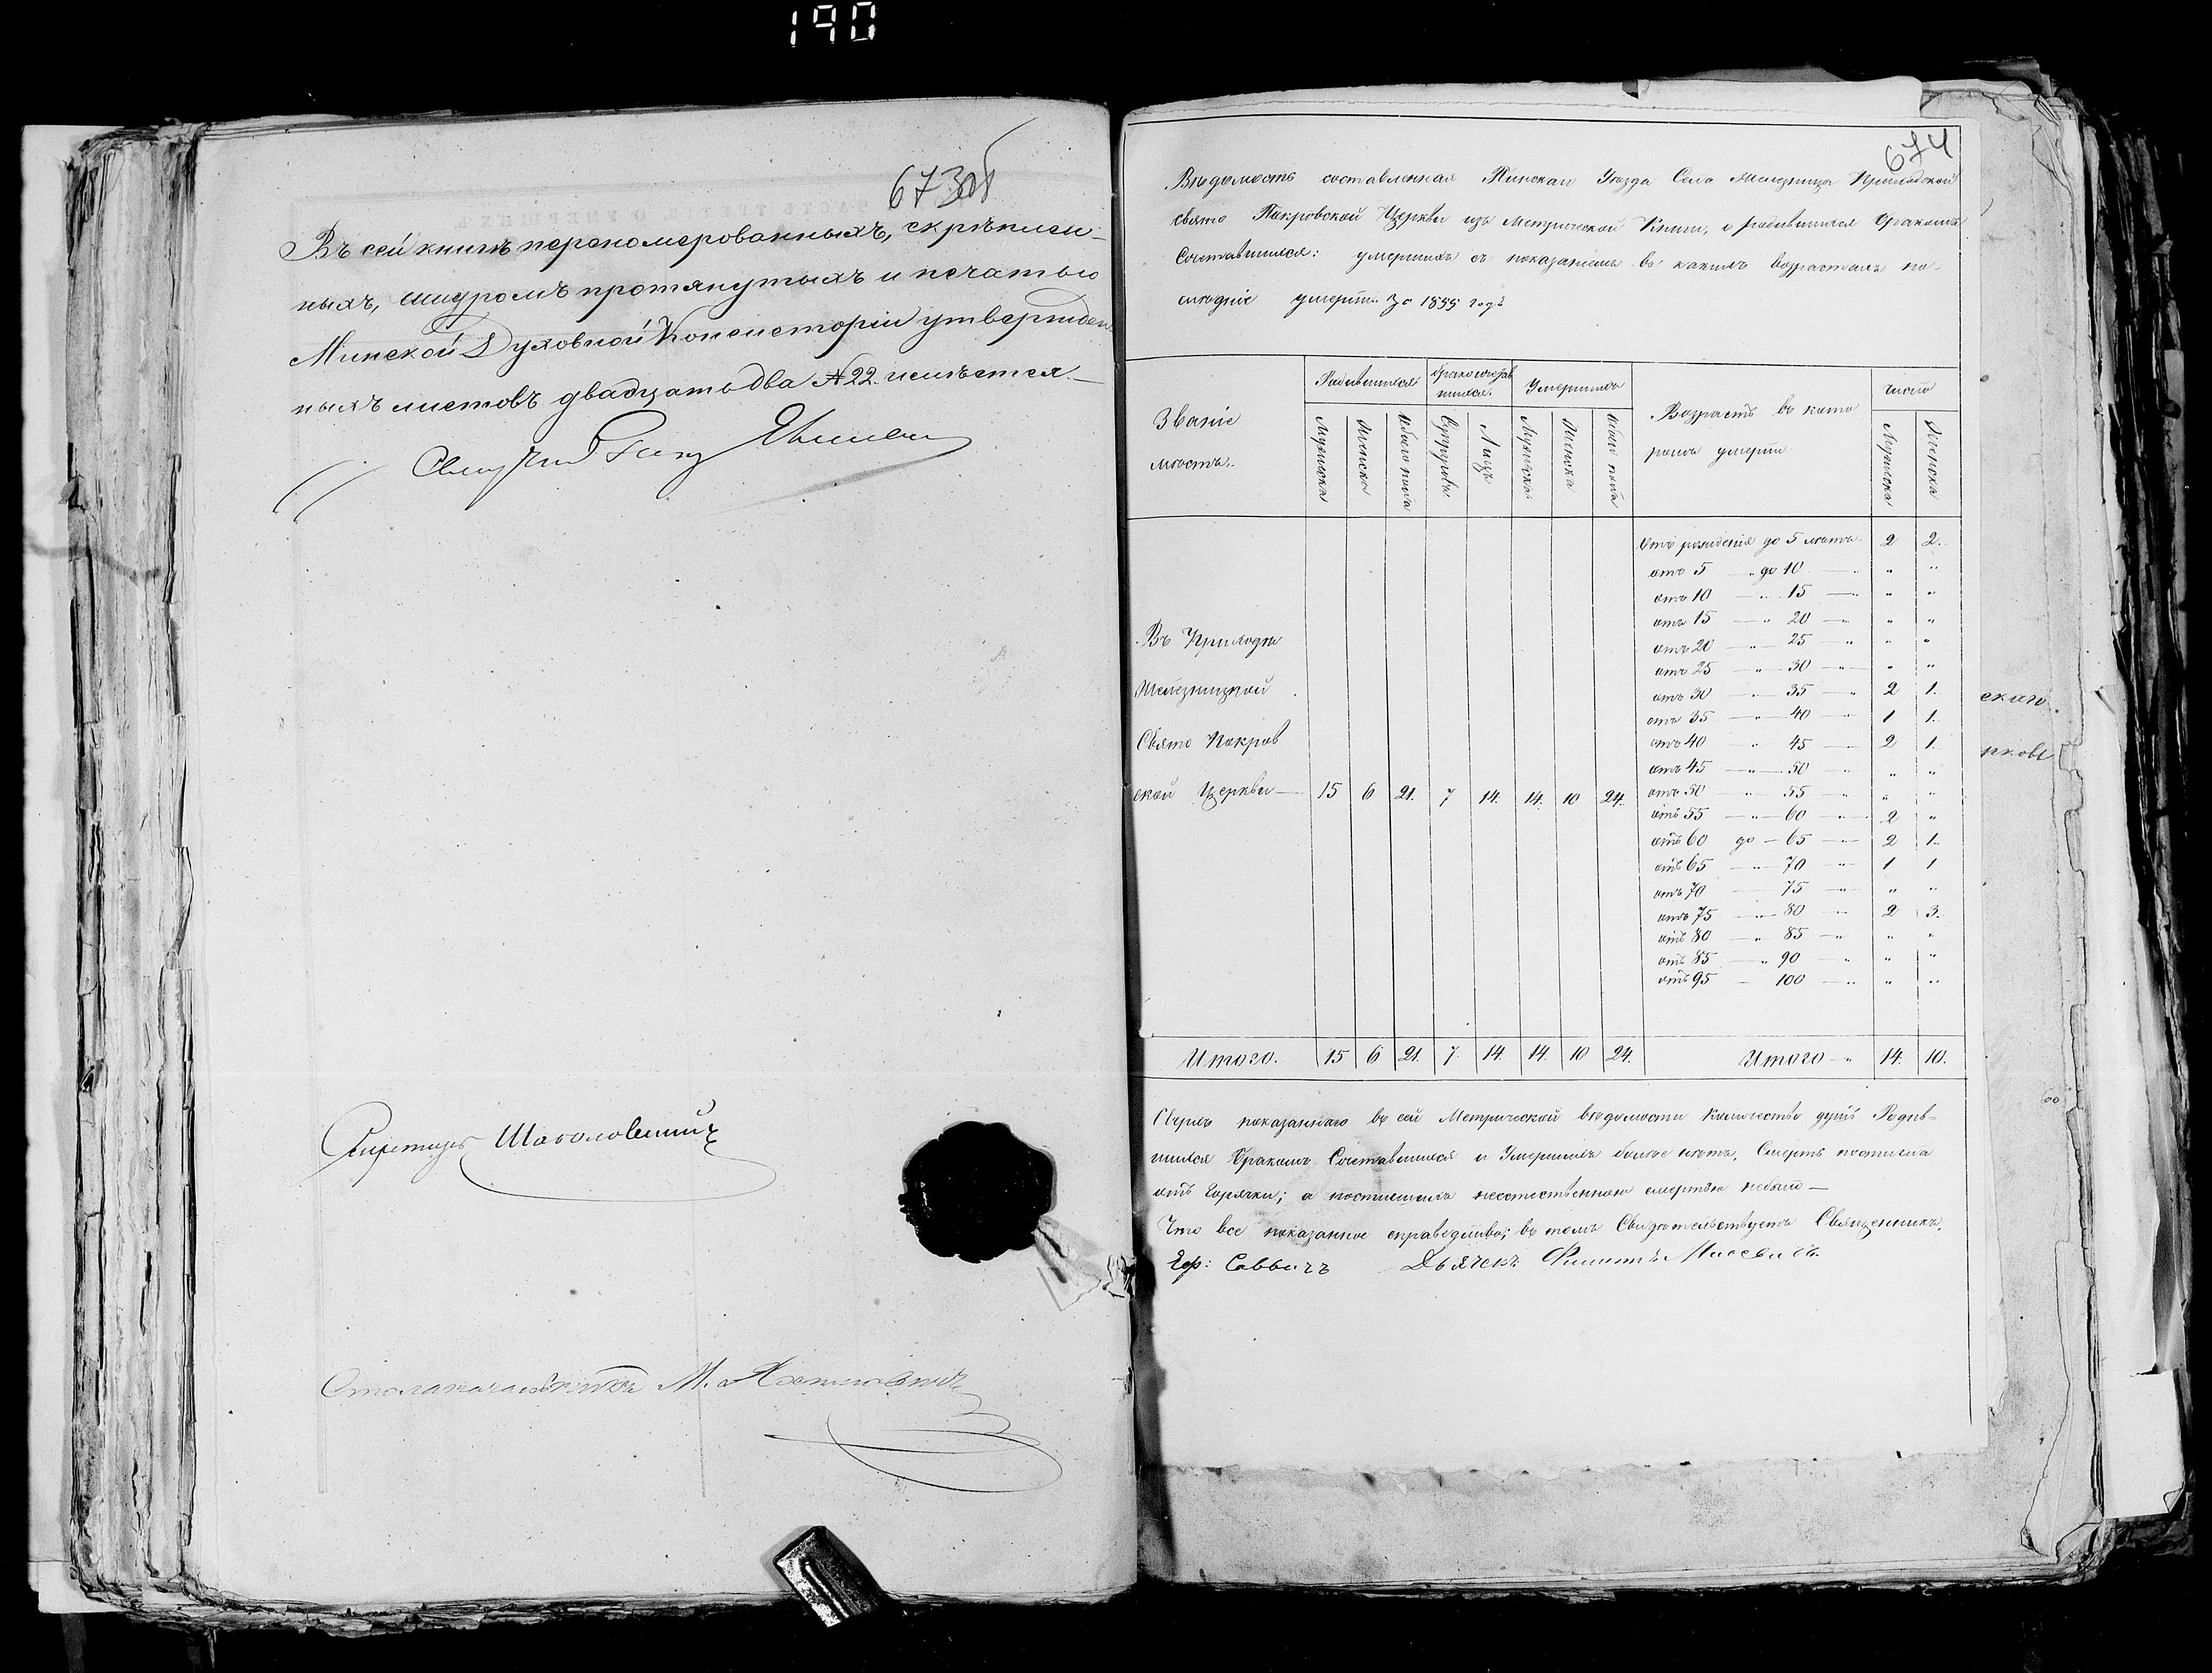 190
673об
Въ сей книгѣ перенумерованныхъ, скрѣплен-
ныхъ, шнуромъ протянутыхъ и печатью
Минской Духовной Консисторіи утвержден
ныхъ листовъ двадцать два № 22. имѣется.—
Секретарь
Столоначальникъ М.
674
Вѣдомость составленная Пинскаго Уѣзда Села Железница Приходской
свято Покровской Церкви изъ Метрической Книги, о родившихся бракомъ
Сочетавшихся: умершихъ съ показаніемъ въ какихъ возрастахъ по-
слѣдніе умерли за 1855 годъ
Званіе
мѣстъ.
Родившихся
Бракосочетав
шихся.
Умершихъ
Возрастъ въ кото
ромъ умерли
число
Мужеска
Женска
Обоего пола
Супруговъ
Лицъ
Мужеска
Женска
Обоего пола
Мужеска
Женска
Отъ рожденія до 5 летъ 2 2.
отъ 5 " до 10 — " " "
отъ 10 — " 15 — " " "
отъ 15 — " 20 — " " "
отъ 20 — " 25 — " " "
отъ 25 — " 30 — " " "
отъ 30 — " 35 — " 2 1.
отъ 35 — " 40 — " 1 1.
отъ 40 " 45 — " 2 1.
отъ 45 — " 50 — " " "
отъ 50 — " 55 — " " "
отъ 55 — " 60 — " 2 "
отъ 60 до — 65 — " 2 1.
отъ 65 — " 70 — " 1 1
отъ 70 — 75 — " " "
отъ 75 — " 80 — " 2 3.
отъ 80 — " 85 — " " "
отъ 85 — " 90 — " " "
отъ 95 — 100 — " " "
Въ Приходѣ
Железницкой
Свято Покров
ской Церкви — 15 6 21. 7 14. 14. 10 24.
Итого. 15 6 21. 7. 14. 14. 10 24. Итого — " 14. 10.
Сверхъ показаннаго въ сей Метрической вѣдомости количества душъ Родив-
шихся Бракомъ Сочетавшихся и Умершихъ болѣе нѣтъ. Смерть постигла
отъ Горячки; а постигшихъ неестественною смертью небыло —
Что все показанное справедливо; въ томъ Свидѣтельствуетъ Священникъ.
Іер: Саввичъ Дьячекъ Филиппъ Мисевичъ.
скаго
рковь